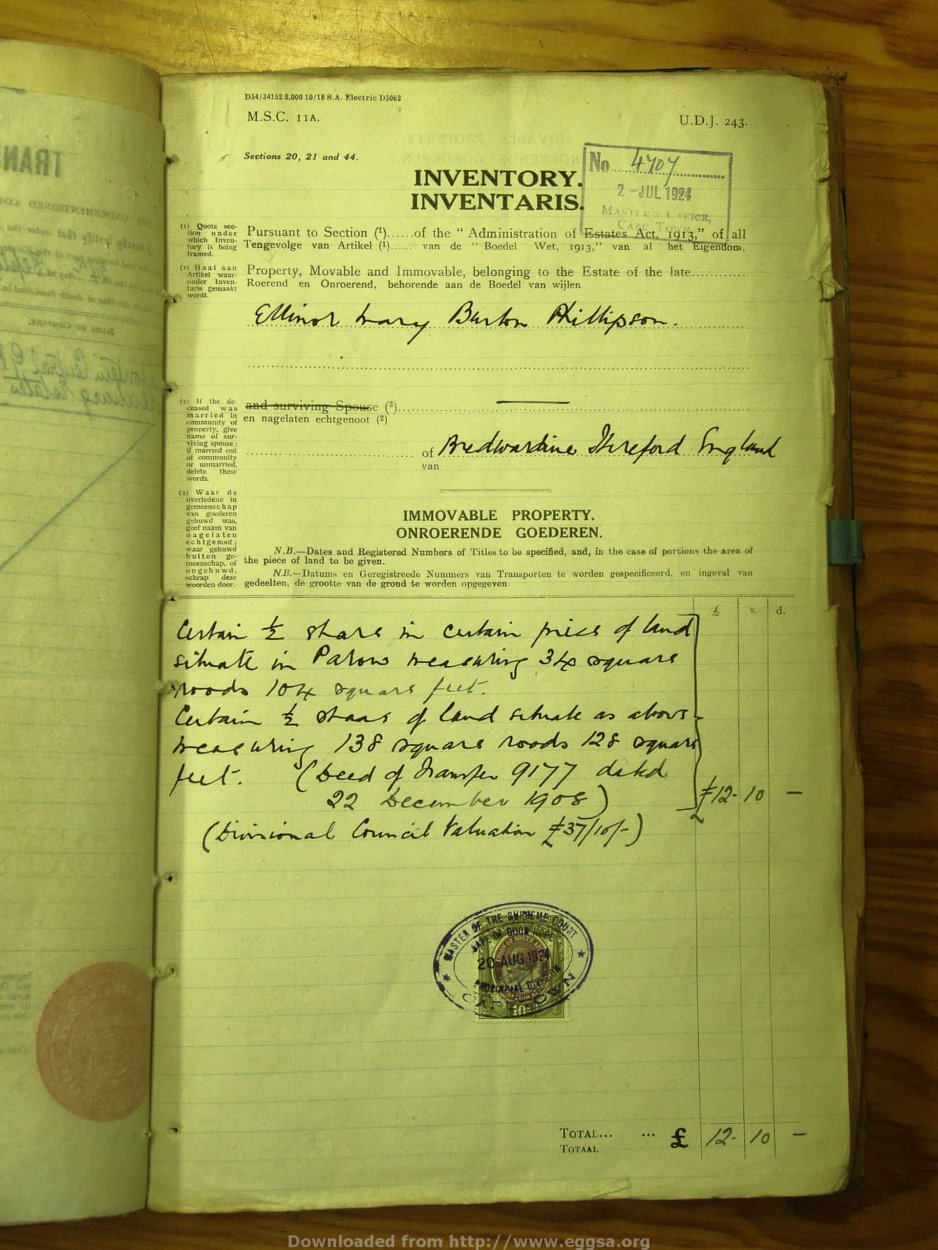 D34/34152 8.000 10/18 S.A. Electric D3062
M.S.C. 11A.
U.D.J. 243.
Sections 20, 21 and 44.
No 4707
2 -JUL 1924
MASTER'S OFFICE,
INVENTORY.
INVENTARIS.
(1) Quote section under which Inventory is being framed.
Pursuant to Section (¹)......of the “ Administration of Estates Act, 1913,” of all
Tengevolge van Artikel (¹)...... van de “ Boedel Wet, 1913,” van al het Eigendom,
(1) Haal aan Artikel waaronder Inventaris gemaakt wordt.
Property, Movable and Immovable, belonging to the Estate of the late............
Roerend en Onroerend, behorende aan de Boedel van wijlen
Ellinor Mary Burton Phillipson.
(2) If the deceased was married in community of property, give name of surviving spouse; if married out of community or unmarried, delete these words.
and surviving Spouse (²)
en nagelaten echtgenoot (²)
of Bredwardine Hereford England
van
(2) Waar de overledene in gemeenschap van goederen gehuwd was, geef naam van nagelaten echtgenoot; waar gehuwd buiten gemeenschap, of ongehuwd, schrap deze woorden door.
IMMOVABLE PROPERTY.
ONROERENDE GOEDEREN.
N.B.—Dates and Registered Numbers of Titles to be specified, and, in the case of portions the area of
the piece of land to be given.
N.B.—Datums en Geregistreede Nummers van Transporten te worden gespecificeerd, en ingeval van
gedeelten, de grootte van de grond te worden opgegeven
£ s. d.
Certain ½ share in certain piece of land
situate in Parow measuring 34 square
roods 104 square feet.
Certain ½ share of land situate as above
measuring 138 square roods 128 square
feet. (Deed of Transfer 9177 dated
22 December 1908)
£12- 10 —
(Divisional Council Valuation £37/10/-)
MASTER OF THE SUPREME COURT
CAPE OF GOOD HOPE
20 AUG 1924
PROVINCIAL DIVISION
CAPE TOWN
TOTAL... ... £ 12. 10 —
TOTAAL
Downloaded from http://www.eggsa.org